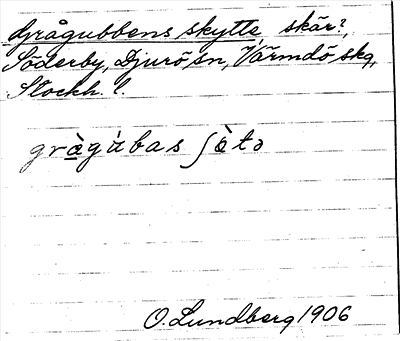 Grågubbens skytte, skär?,
Söderby, Djurö sn, Värmdö skg,
Stockh. l.
gràgùbas ʃ&#232;tə
O. Lundberg 1906